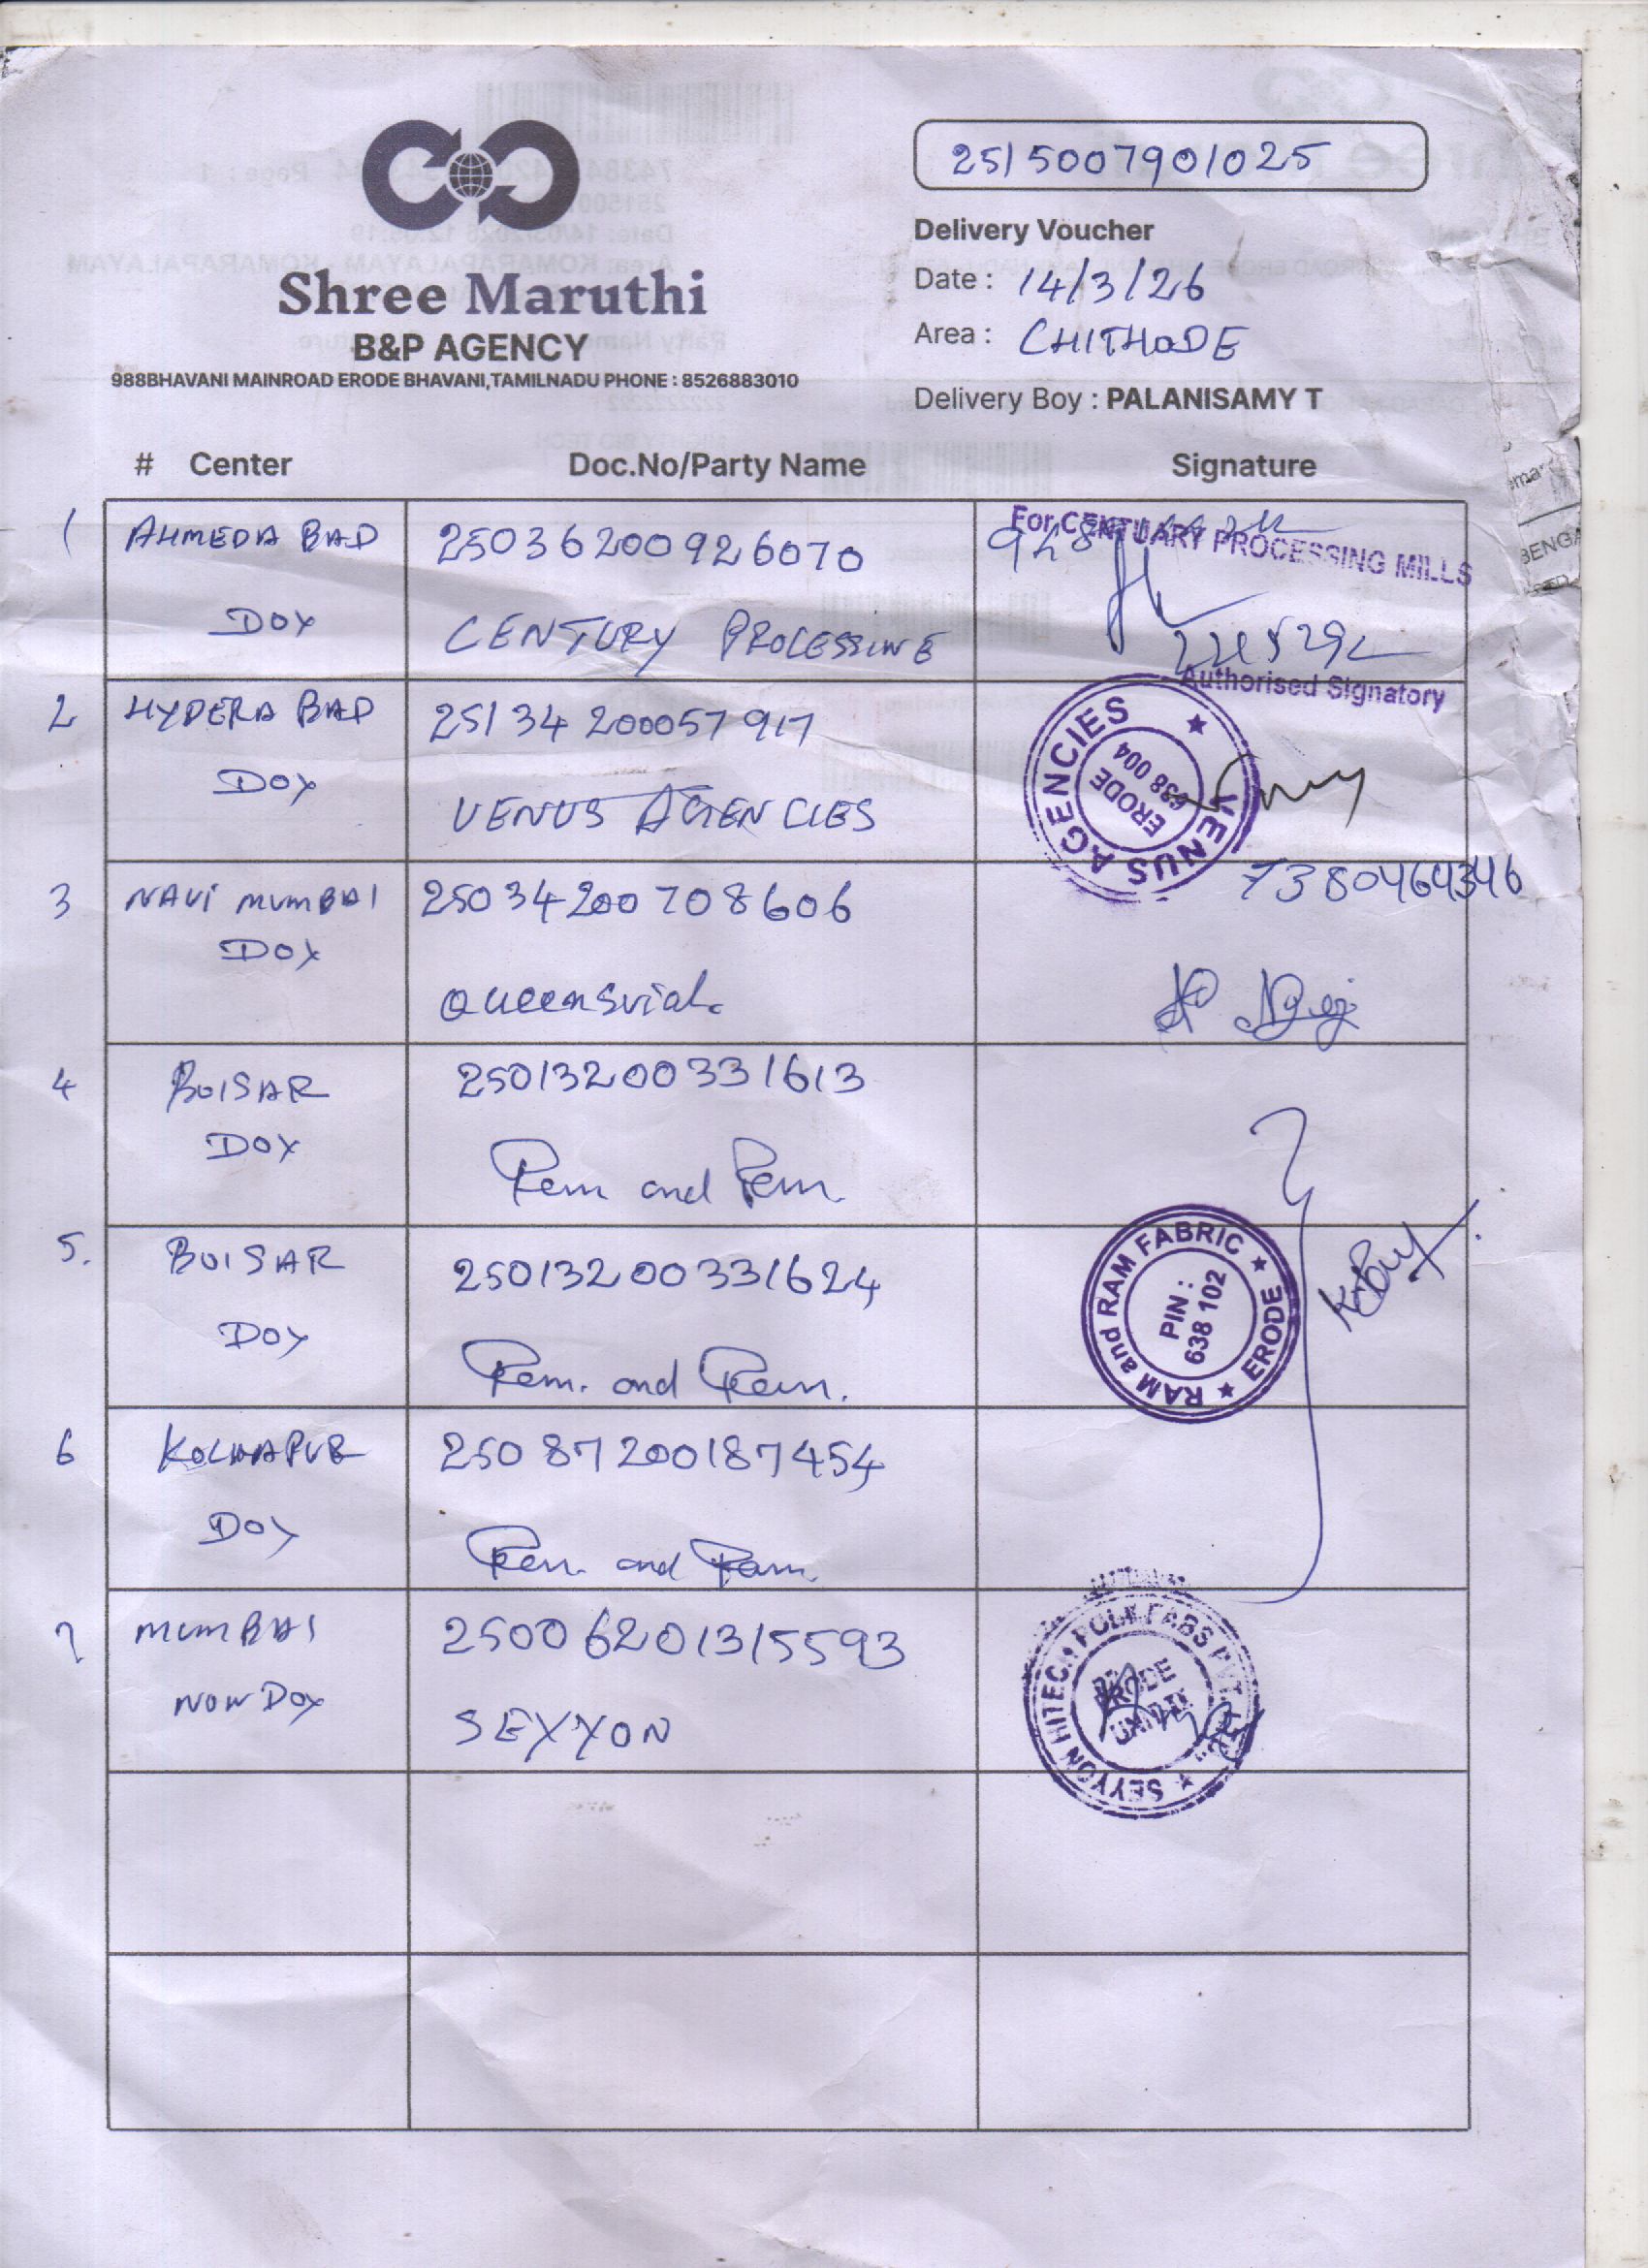 2515007901025
Delivery Voucher
Date : 14/3/26
Area : CHITHODE
Delivery Boy : PALANISAMY T
Shree Maruthi
B&P AGENCY
988BHAVANI MAINROAD ERODE BHAVANI,TAMILNADU PHONE : 8526883010
# Center Doc.No/Party Name Signature
1 AHMEDA BAD 25036200926070
DOX CENTURY PROCESSING
For CENTUARY PROCESSING MILLS
Authorised Signatory
2 HYDERA BAD 25134200057917
DOX VENUS AGENCIES
VENUS AGENCIES
ERODE
638 004
3 NAVI MUMBAI 25034200708606
7380464346
DOX
4 BOISAR 25013200331613
DOX Ram and Ram.
5. BOISAR 25013200331624
DOX Ram. and Ram.
RAM and RAM FABRIC ★ ERODE ★
PIN :
638 102
6 KOLHAPUR 25087200187454
DOX Ram. and Ram.
7 MUMBAI 25006201315593
NON DOX SEYYON
SEYYON HITECH POLY FABS PVT. LTD.,
ERODE